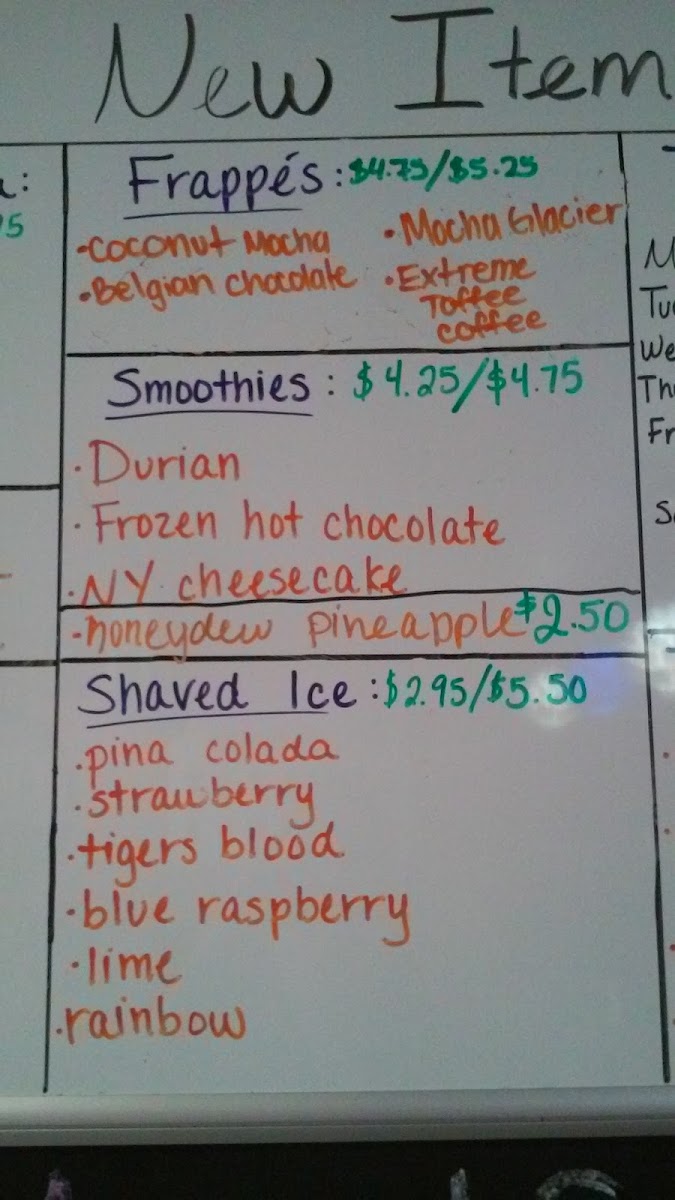 New Item
Frappés: $4.75/$5.25
•coconut Mocha
•Belgian chocolate
•Mocha Glacier
•Extreme
Toffee
coffee
Smoothies: $4.25/$4.75
•Durian
•Frozen hot chocolate
•NY cheesecake
•honeydew pineapple $2.50
Shaved Ice: $2.95/$5.50
•pina colada
•strawberry
•tigers blood
•blue raspberry
•lime
•rainbow